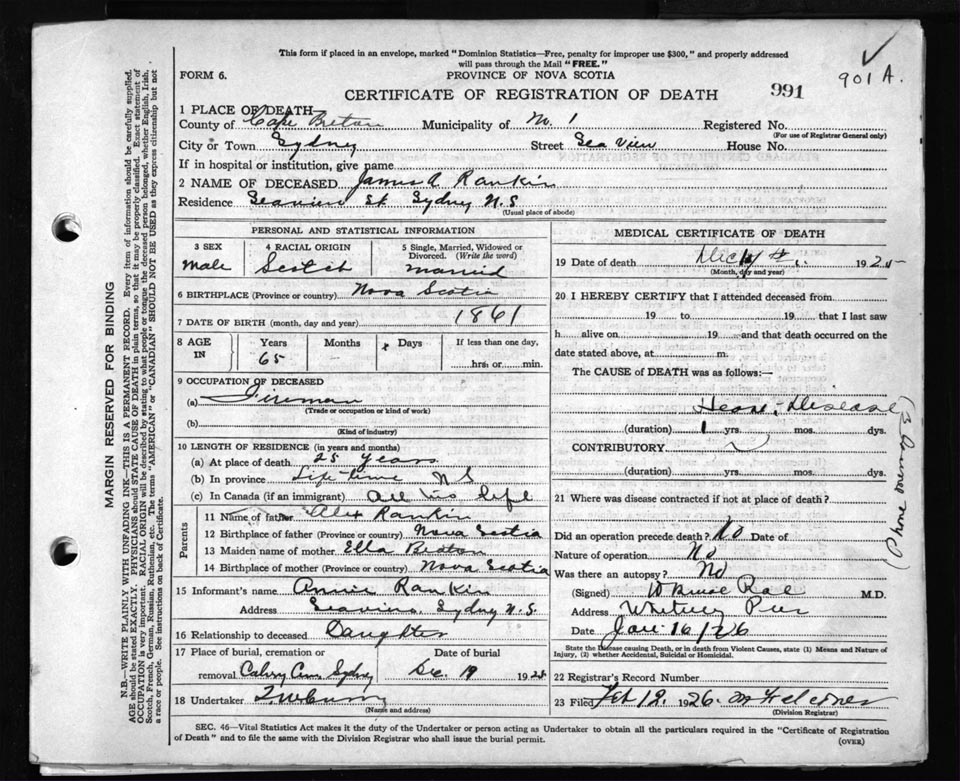 This form if placed in an envelope, marked "Dominion Statistics—Free, penalty for improper use $300," and properly addressed
will pass through the Mail "FREE."
FORM 6.
PROVINCE OF NOVA SCOTIA
901 A.
CERTIFICATE OF REGISTRATION OF DEATH
991
1 PLACE OF DEATH
County of Cape Breton Municipality of No. 1 Registered No.
(For use of Registrar General only)
City or Town Sydney Street Sea View House No.
If in hospital or institution, give name
2 NAME OF DECEASED James A Rankin
Residence Seaview St. Sydney N.S
(Usual place of abode)
PERSONAL AND STATISTICAL INFORMATION
3 SEX
male
4 RACIAL ORIGIN
Scotch
5 Single, Married, Widowed or
Divorced. (Write the word)
married
6 BIRTHPLACE (Province or country) Nova Scotia
7 DATE OF BIRTH (month, day and year) 1861
8 AGE
IN
Years
65
Months
Days
If less than one day,
hrs. or min.
9 OCCUPATION OF DECEASED
(a) Fireman
(Trade or occupation or kind of work)
(b)
(Kind of industry)
10 LENGTH OF RESIDENCE (in years and months)
(a) At place of death 25 years
(b) In province Life-time NS
(c) In Canada (if an immigrant) all his life
Parents
11 Name of father Alex Rankin
12 Birthplace of father (Province or country) Nova Scotia
13 Maiden name of mother Ella Beaton
14 Birthplace of mother (Province or country) Nova Scotia
15 Informant's name Annie Rankin
Address Sydney N.S.
16 Relationship to deceased Daughter
17 Place of burial, cremation or
removal Sydney
Date of burial
Dec. 19 1925
18 Undertaker
(Name and address)
MEDICAL CERTIFICATE OF DEATH
19 Date of death 1925
(Month, day and year)
20 I HEREBY CERTIFY that I attended deceased from
19 to 19 that I last saw
h alive on 19 and that death occurred on the
date stated above, at m.
The CAUSE of DEATH was as follows:—
Heart Disease
(duration) 1 yrs. mos. dys.
CONTRIBUTORY
(duration) yrs. mos. dys.
21 Where was disease contracted if not at place of death?
Did an operation precede death? No Date of
Nature of operation No
Was there an autopsy? No
(Signed) Rae M.D.
Address Whitney Pier
Date Jan 16/26
State the Disease causing Death, or in death from Violent Causes, state (1) Means and Nature of
Injury, (2) whether Accidental, Suicidal or Homicidal.
22 Registrar's Record Number
23 Filed Feb 12. 1926.
(Division Registrar)
SEC. 46—Vital Statistics Act makes it the duty of the Undertaker or person acting as Undertaker to obtain all the particulars required in the "Certificate of Registration
of Death" and to file the same with the Division Registrar who shall issue the burial permit.
(OVER)
MARGIN RESERVED FOR BINDING
N.B.—WRITE PLAINLY WITH UNFADING INK—THIS IS A PERMANENT RECORD. Every item of information should be carefully supplied.
AGE should be stated EXACTLY. PHYSICIANS should STATE CAUSE OF DEATH in plain terms, so that it may be properly classified. Exact statement of
OCCUPATION is very important. RACIAL ORIGIN will be described by stating to what people or tongue the deceased person belonged, whether English, Irish,
Scotch, French, German, Russian, Ruthenian, etc. The terms "AMERICAN" or "CANADIAN" SHOULD NOT BE USED as they express citizenship but not
a race or people. See instructions on back of Certificate.